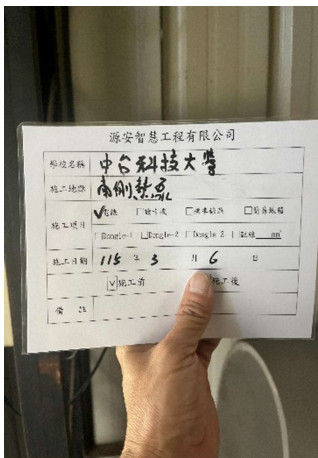 源安智慧工程有限公司
學校名稱 中台科技大學
施工地點 南側
施工項目
Dongle-1 Dongle-2 Dongle 2 配線 mm²
施工日期 115 年 3 月 6 日
V 施工前 施工後
備 註